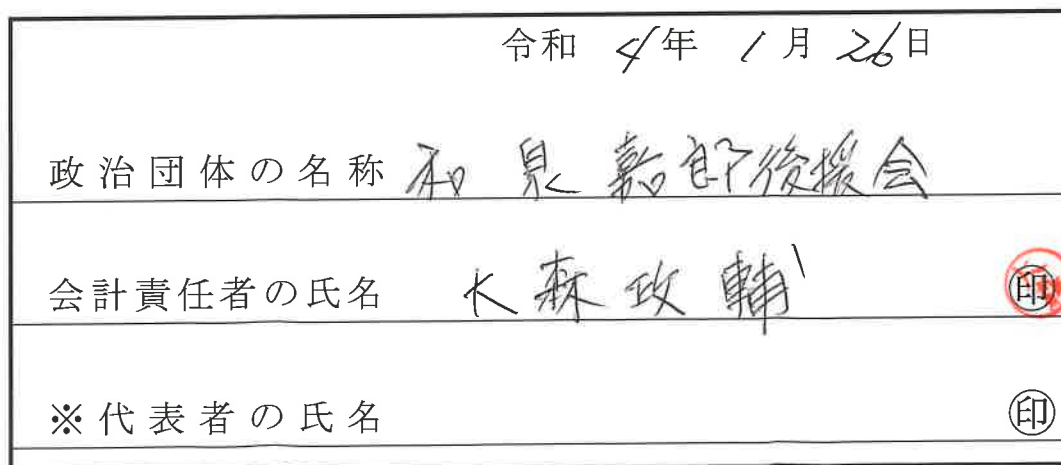 令和 4年 1月 26日
政治団体の名称 和泉嘉郎後援会
会計責任者の氏名 大森政輔 ㊞
※代表者の氏名 ㊞